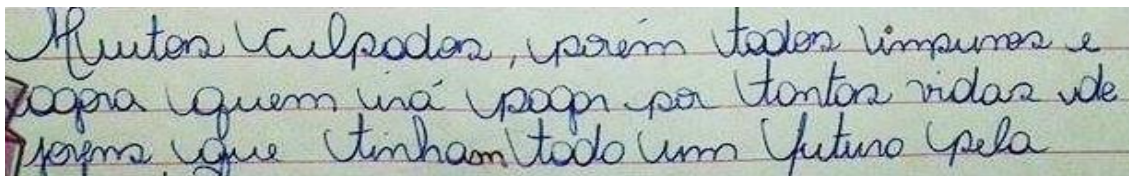 Muitos culpados, porém todos impunes e
agora quem irá pagr por tantas vidas de
jovens que tinham todo um futuro pela